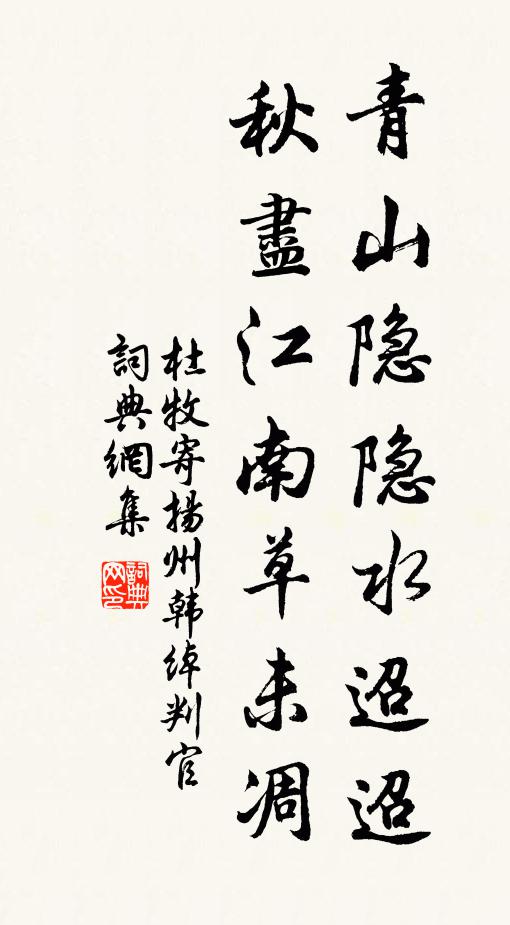 青山隐隐水迢迢
秋盡江南草未凋
杜牧寄揚州韩绰判官
詞典網集
詞典网印